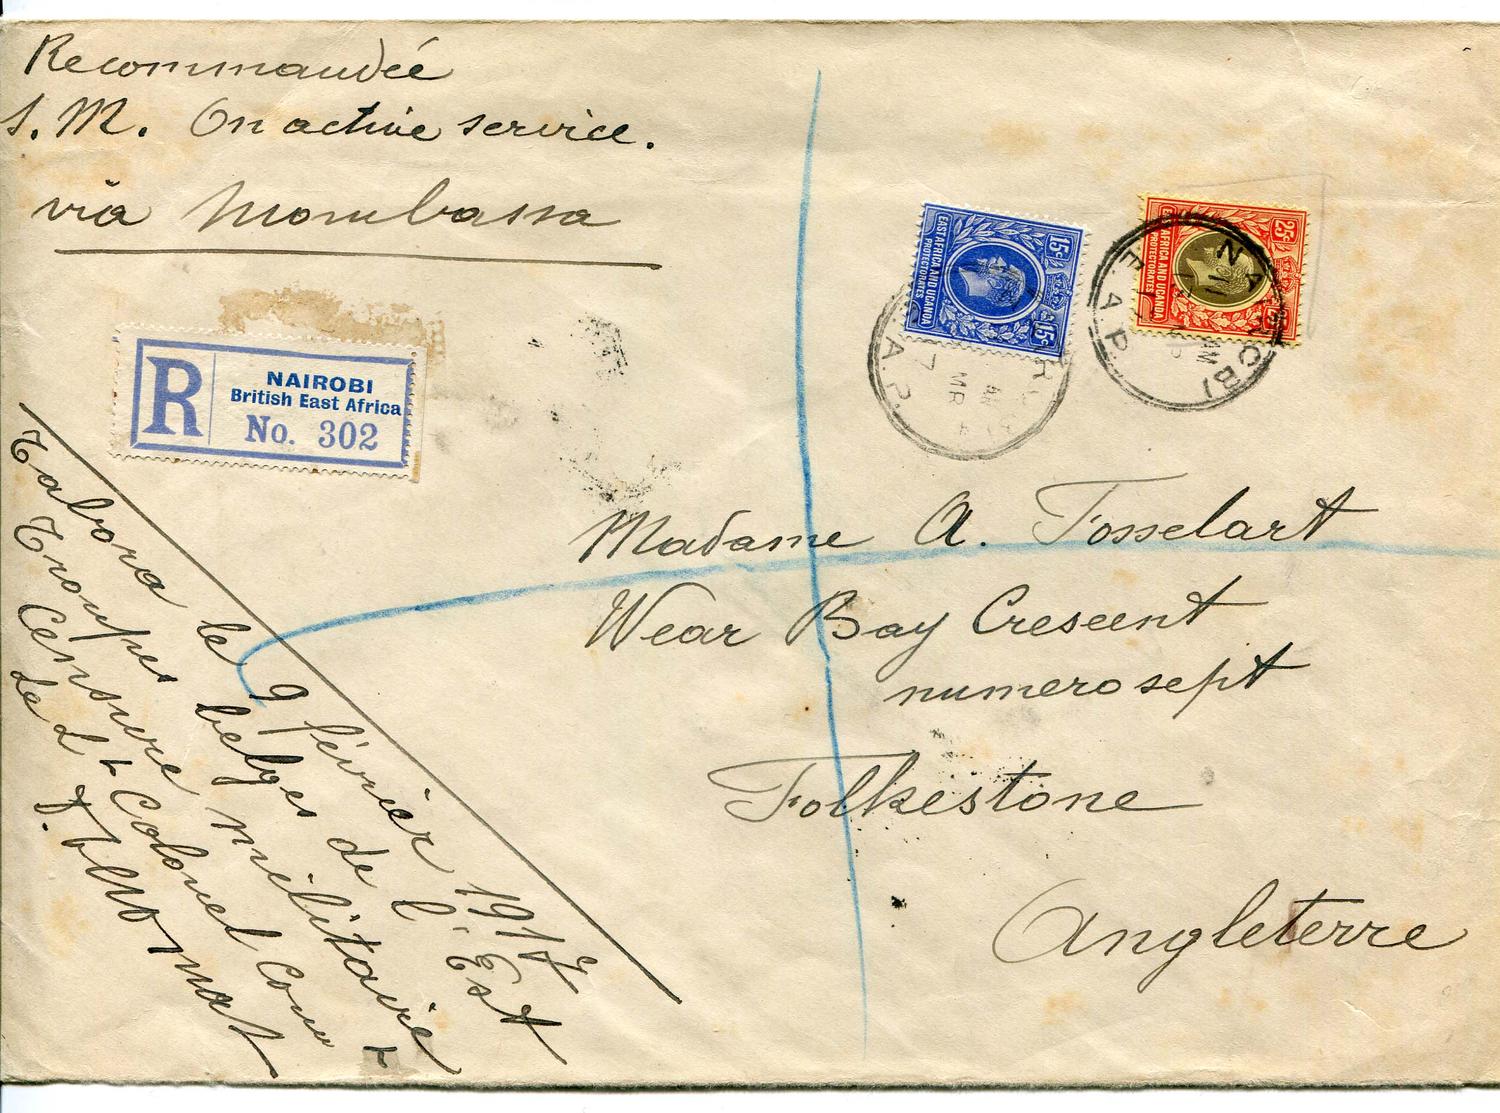 Recommandée
S.M. On active service.
via Mombassa
EAST AFRICA AND UGANDA
PROTECTORATES
15c
15c
AFRICA AND UGANDA
PROTECTORATES
25c
NAIROBI
E.A.P.
A.P.
MR
R
NAIROBI
British East Africa
No. 302
Madame A. Fosselart
Wear Bay Crescent
numero sept
Folkestone
Angleterre
Tabora le 9 février 1917
Troupes belges de l'Est
Censure militaire
Le Lt Colonel Comt